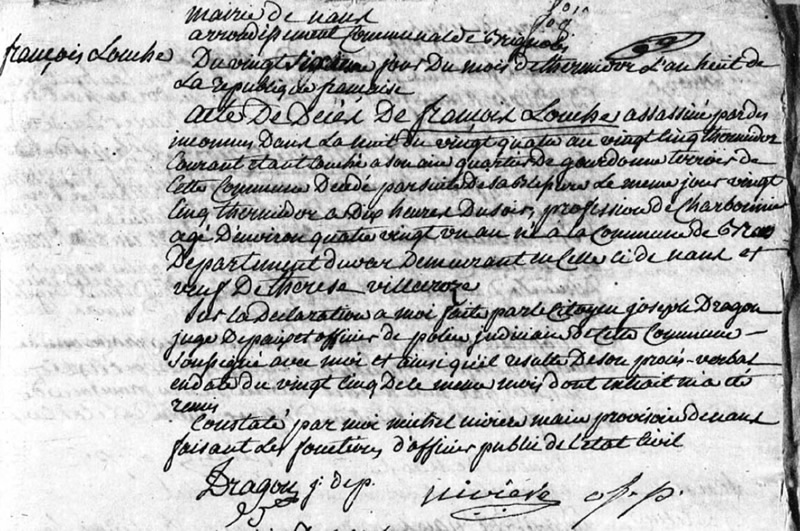 mairie de nans
arrondissement Communal de Brignoles
françois Louche
Du vingt sixieme jour du mois de thermidor L'an huit de
La republique francaise
Acte De Décés De françois Louche assassiné par des
inconnus Dans La nuit du vingt quatre au vingt Cinq thermidor
Courant Etant Couché a son aire quartier de gourdonne terroir de
Cette Commune Décédé par suite de sa blessure Le meme jour vingt
Cinq thermidor a Dix heures Du soir, profession de Charbonnier
agé D'environ quatre vingt un an né a la Commune de Bras
Departement du var Demeurant en Celle ci de nans et
veuf De therese villecroze
sur la Declaration a moi faite par le Citoyen joseph Dragon
juge De paix et officier de police judiciaire de Cette Commune
soussigné avec moi et ainsi qu'il resulte De son procès-verbal
en date du vingt Cinq De le meme mois dont Extrait m'a eté
remis
Constaté par moi michel niviere maire provisoire de nans
faisant Les fonctions d'officier public de L'etat Civil
Dragon j. de p. niviere of. p.